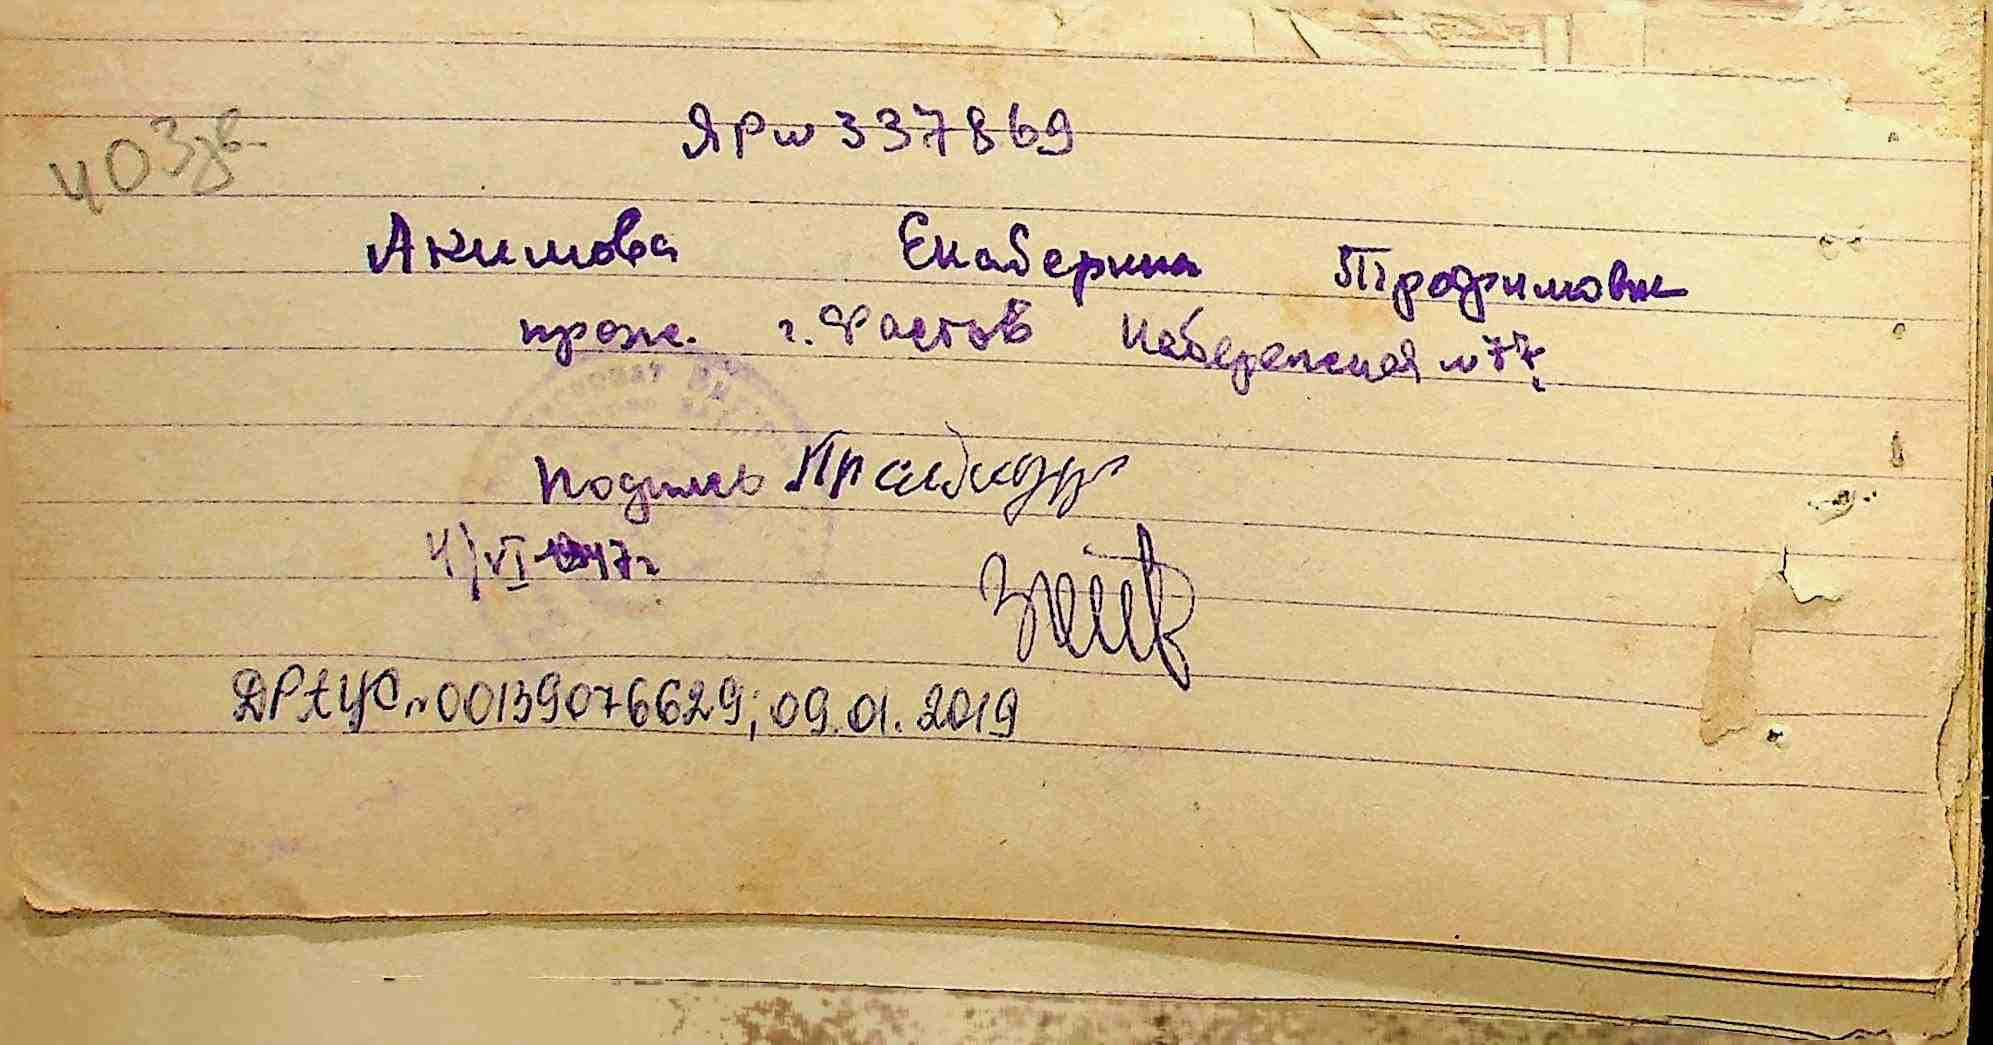 403 зв.
ЯР № 337869
Акимова Екатерина Трофимовн
прож. г. Фастов Набережная № 77
Подпись
4/VI 47г
ДРАЦС № 00139076629; 09.01.2019